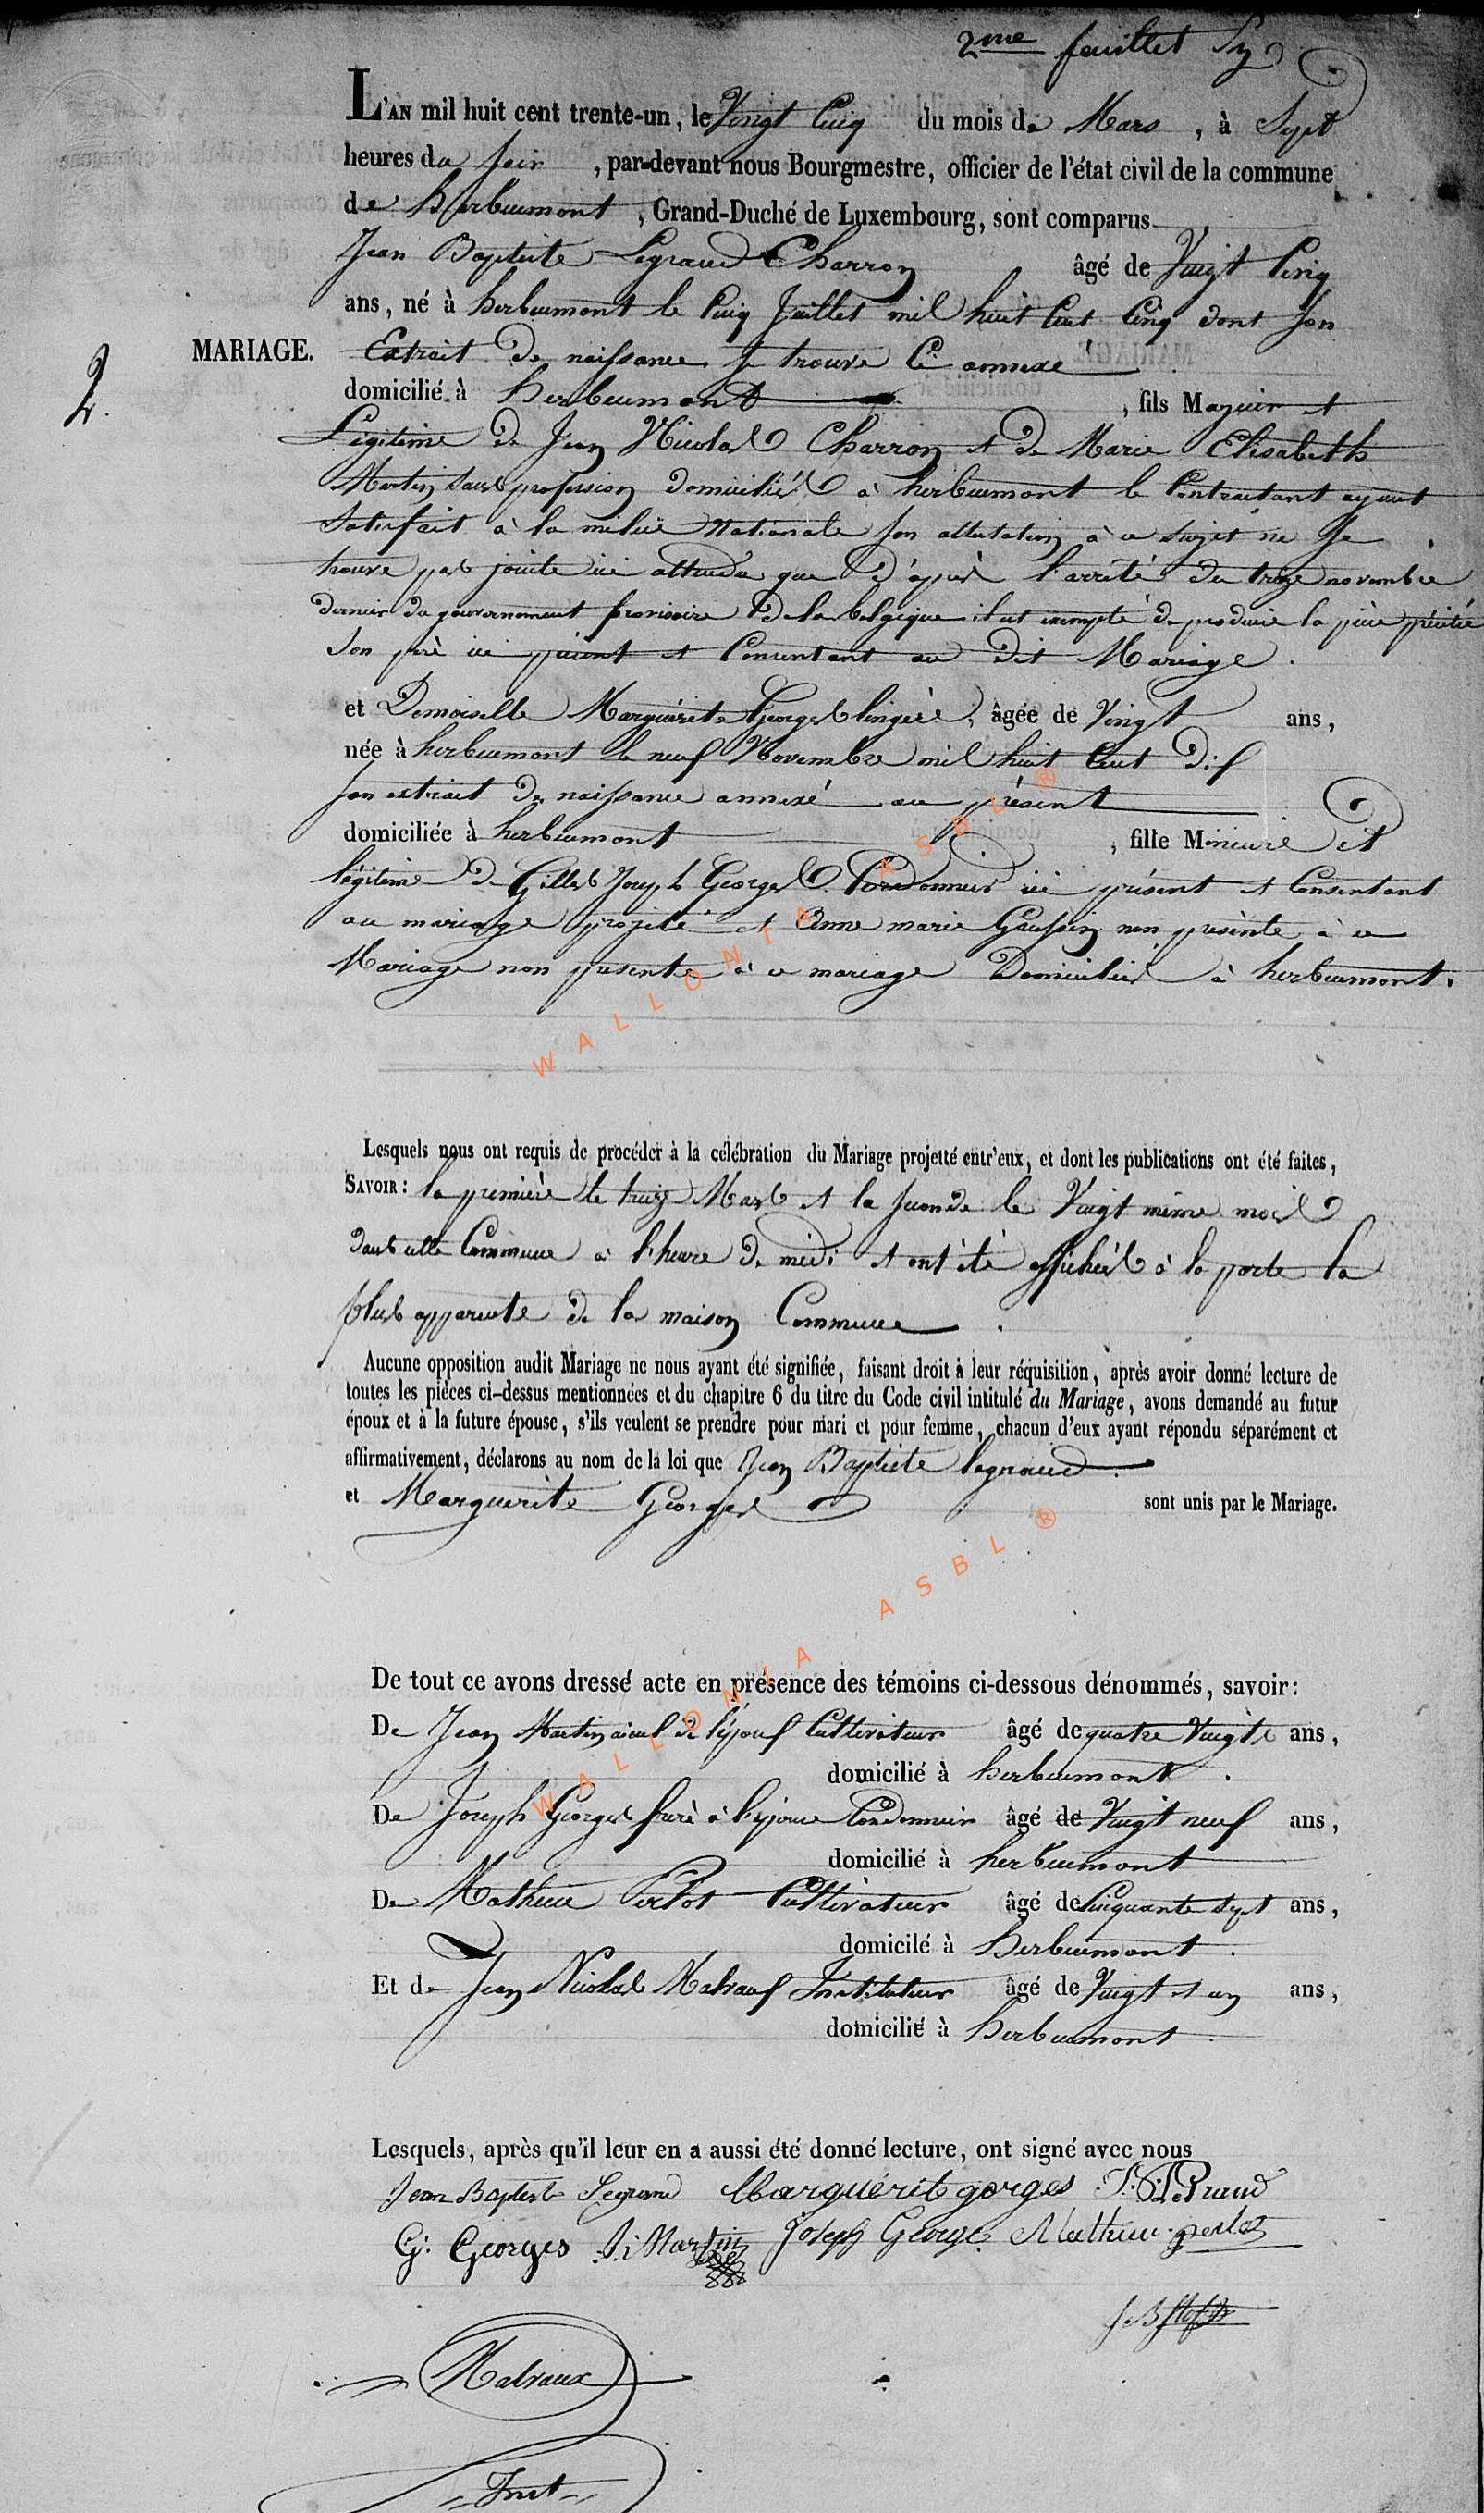 2me feuillet
L'AN mil huit cent trente-un, le Vingt Cinq du mois de Mars, à Sept
heures du soir, par-devant nous Bourgmestre, officier de l'état civil de la commune
de herbeumont, Grand-Duché de Luxembourg, sont comparus
Jean Baptiste Legrand Charron âgé de Vingt Cinq
ans, né à herbeumont le Cinq Juillet mil huit Cent Cinq dont Son
MARIAGE. Extrait de naissance se trouve Ci annexé
2.
domicilié à herbeumont, fils Majeur et
Légitime de Jean Nicolas Charron et de Marie Elisabeth
Martin sans profession domiciliés à herbeumont le Contractant ayant
satisfait à la milice Nationale son attestation à ce sujet ne se
trouve pas jointe ici attendu que d'après l'arrêté du treize novembre
dernier du gouvernement provisoire de la belgique il est exempté de produire la pièce précitée
Son père ici présent et Consentant au dit Mariage.
et Demoiselle Marguérite Georges lingère, âgée de Vingt ans,
née à herbeumont le neuf Novembre mil huit Cent dif
son extrait de naissance annexé au présent
domiciliée à herbeumont, fille Mineure et
légitime de Gilles Joseph Georges Cordonnier ici présent et Consentant
au mariage projeté et Anne marie Gaussin non présente à ce
Mariage non présente à ce mariage Domiciliés à herbeumont.
WALLONIA ASBL ®
Lesquels nous ont requis de procéder à la célébration du Mariage projetté entr'eux, et dont les publications ont été faites,
SAVOIR: la première le treize Mars et la seconde le Vingt même mois
dans cette Commune à l'heure de midi et ont été affichées à la porte la
plus apparente de la maison Commune.
Aucune opposition audit Mariage ne nous ayant été signifiée, faisant droit à leur réquisition, après avoir donné lecture de
toutes les pièces ci-dessus mentionnées et du chapitre 6 du titre du Code civil intitulé du Mariage, avons demandé au futur
époux et à la future épouse, s'ils veulent se prendre pour mari et pour femme, chacun d'eux ayant répondu séparément et
affirmativement, déclarons au nom de la loi que Jean Baptiste legrand
et Marguerite Georges sont unis par le Mariage.
WALLONIA ASBL ®
De tout ce avons dressé acte en présence des témoins ci-dessous dénommés, savoir:
De Jean Martin aieul de l'épouf Cultivateur âgé de quatre Vingts ans,
domicilié à herbeumont.
De Joseph Georges frère à l'épouse Cordonnier âgé de Vingt neuf ans,
domicilié à herbeumont
De Mathieu Perlot Cultivateur âgé de Cinquante Sept ans,
domicilé à herbeumont.
Et de Jean Nicolas Malrauf Instituteur âgé de Vingt et un ans,
domicilié à herbeumont.
Lesquels, après qu'il leur en a aussi été donné lecture, ont signé avec nous
Jean Baptiste Legrand Marguérit gorges
G: Georges J: Martin Joseph George Mathieu perlot
Malraux
Inst